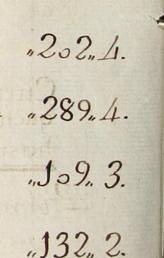 „202„4.
„289„4.
„109„3.
„132„2.